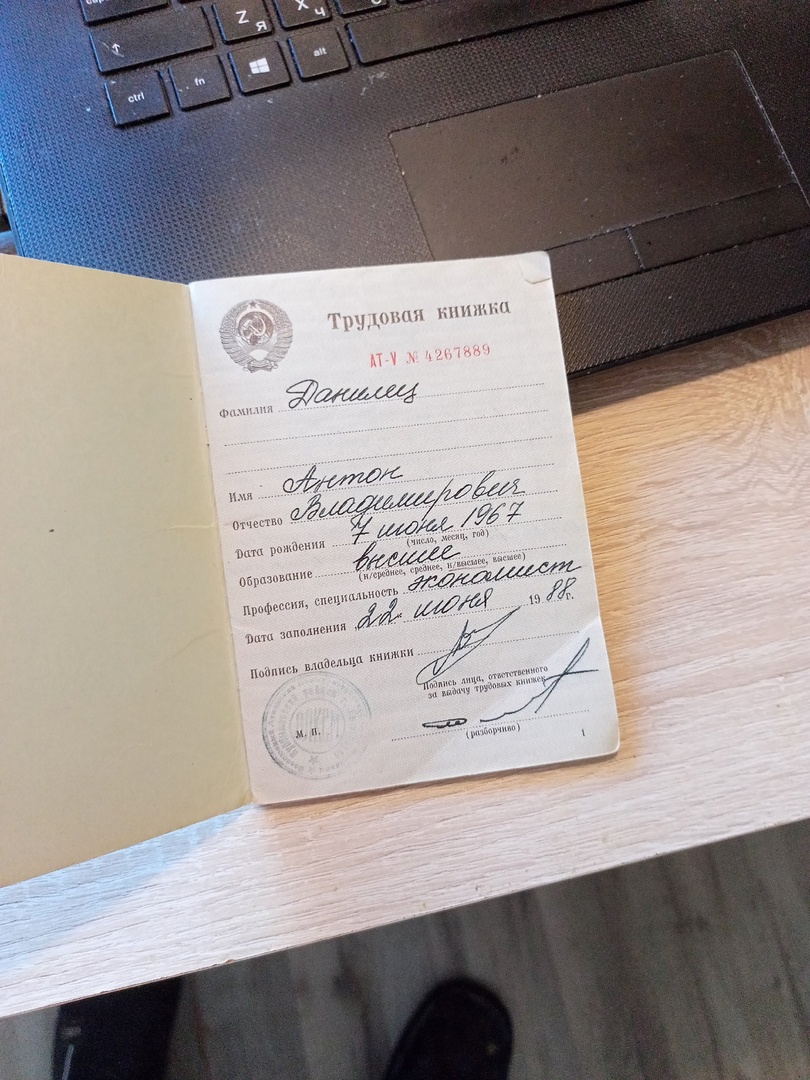 Z Я
X Ч
ctrl
fn
alt
Трудовая книжка
АТ-V № 4267889
Фамилия Данилец
Имя Антон
Отчество Владимирович
Дата рождения 7 июня 1967
(число, месяц, год)
Образование высшее
(н/среднее, среднее, н/высшее, высшее)
Профессия, специальность экономист
Дата заполнения 22 июня 1988 г.
Подпись владельца книжки
Подпись лица, ответственного
за выдачу трудовых книжек
М. П.
ВЛКСМ
(разборчиво)
1